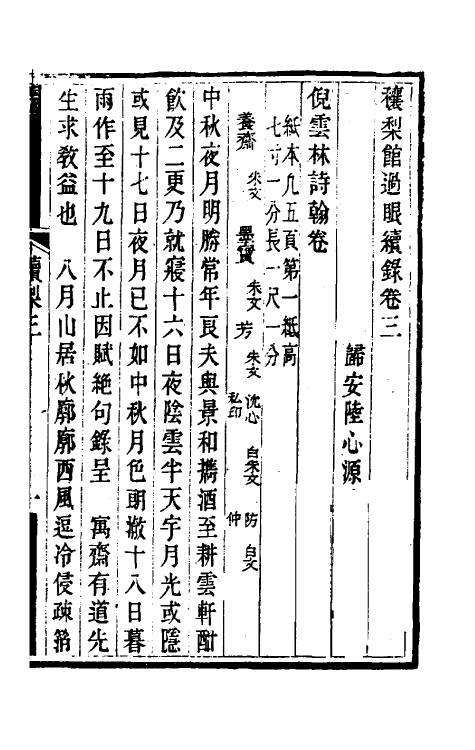 穰梨館過眼續錄卷三
歸安陸心源
倪雲林詩翰卷
紙本凡五頁第一紙高
七寸一分長一尺一分
養齋 朱文 墨寶 朱文 芳 朱文 沈心私印 白朱文 防仲 白文
中秋夜月明勝常年良夫與景和攜酒至耕雲軒酣
飲及二更乃就寢十六日夜陰雲半天宇月光或隱
或見十七日夜月已不如中秋月色明澈十八日暮
雨作至十九日不止因賦絶句錄呈 寓齋有道先
生求教益也 八月山居秋廓廓西風逗冷侵疎箔
續梨三
一